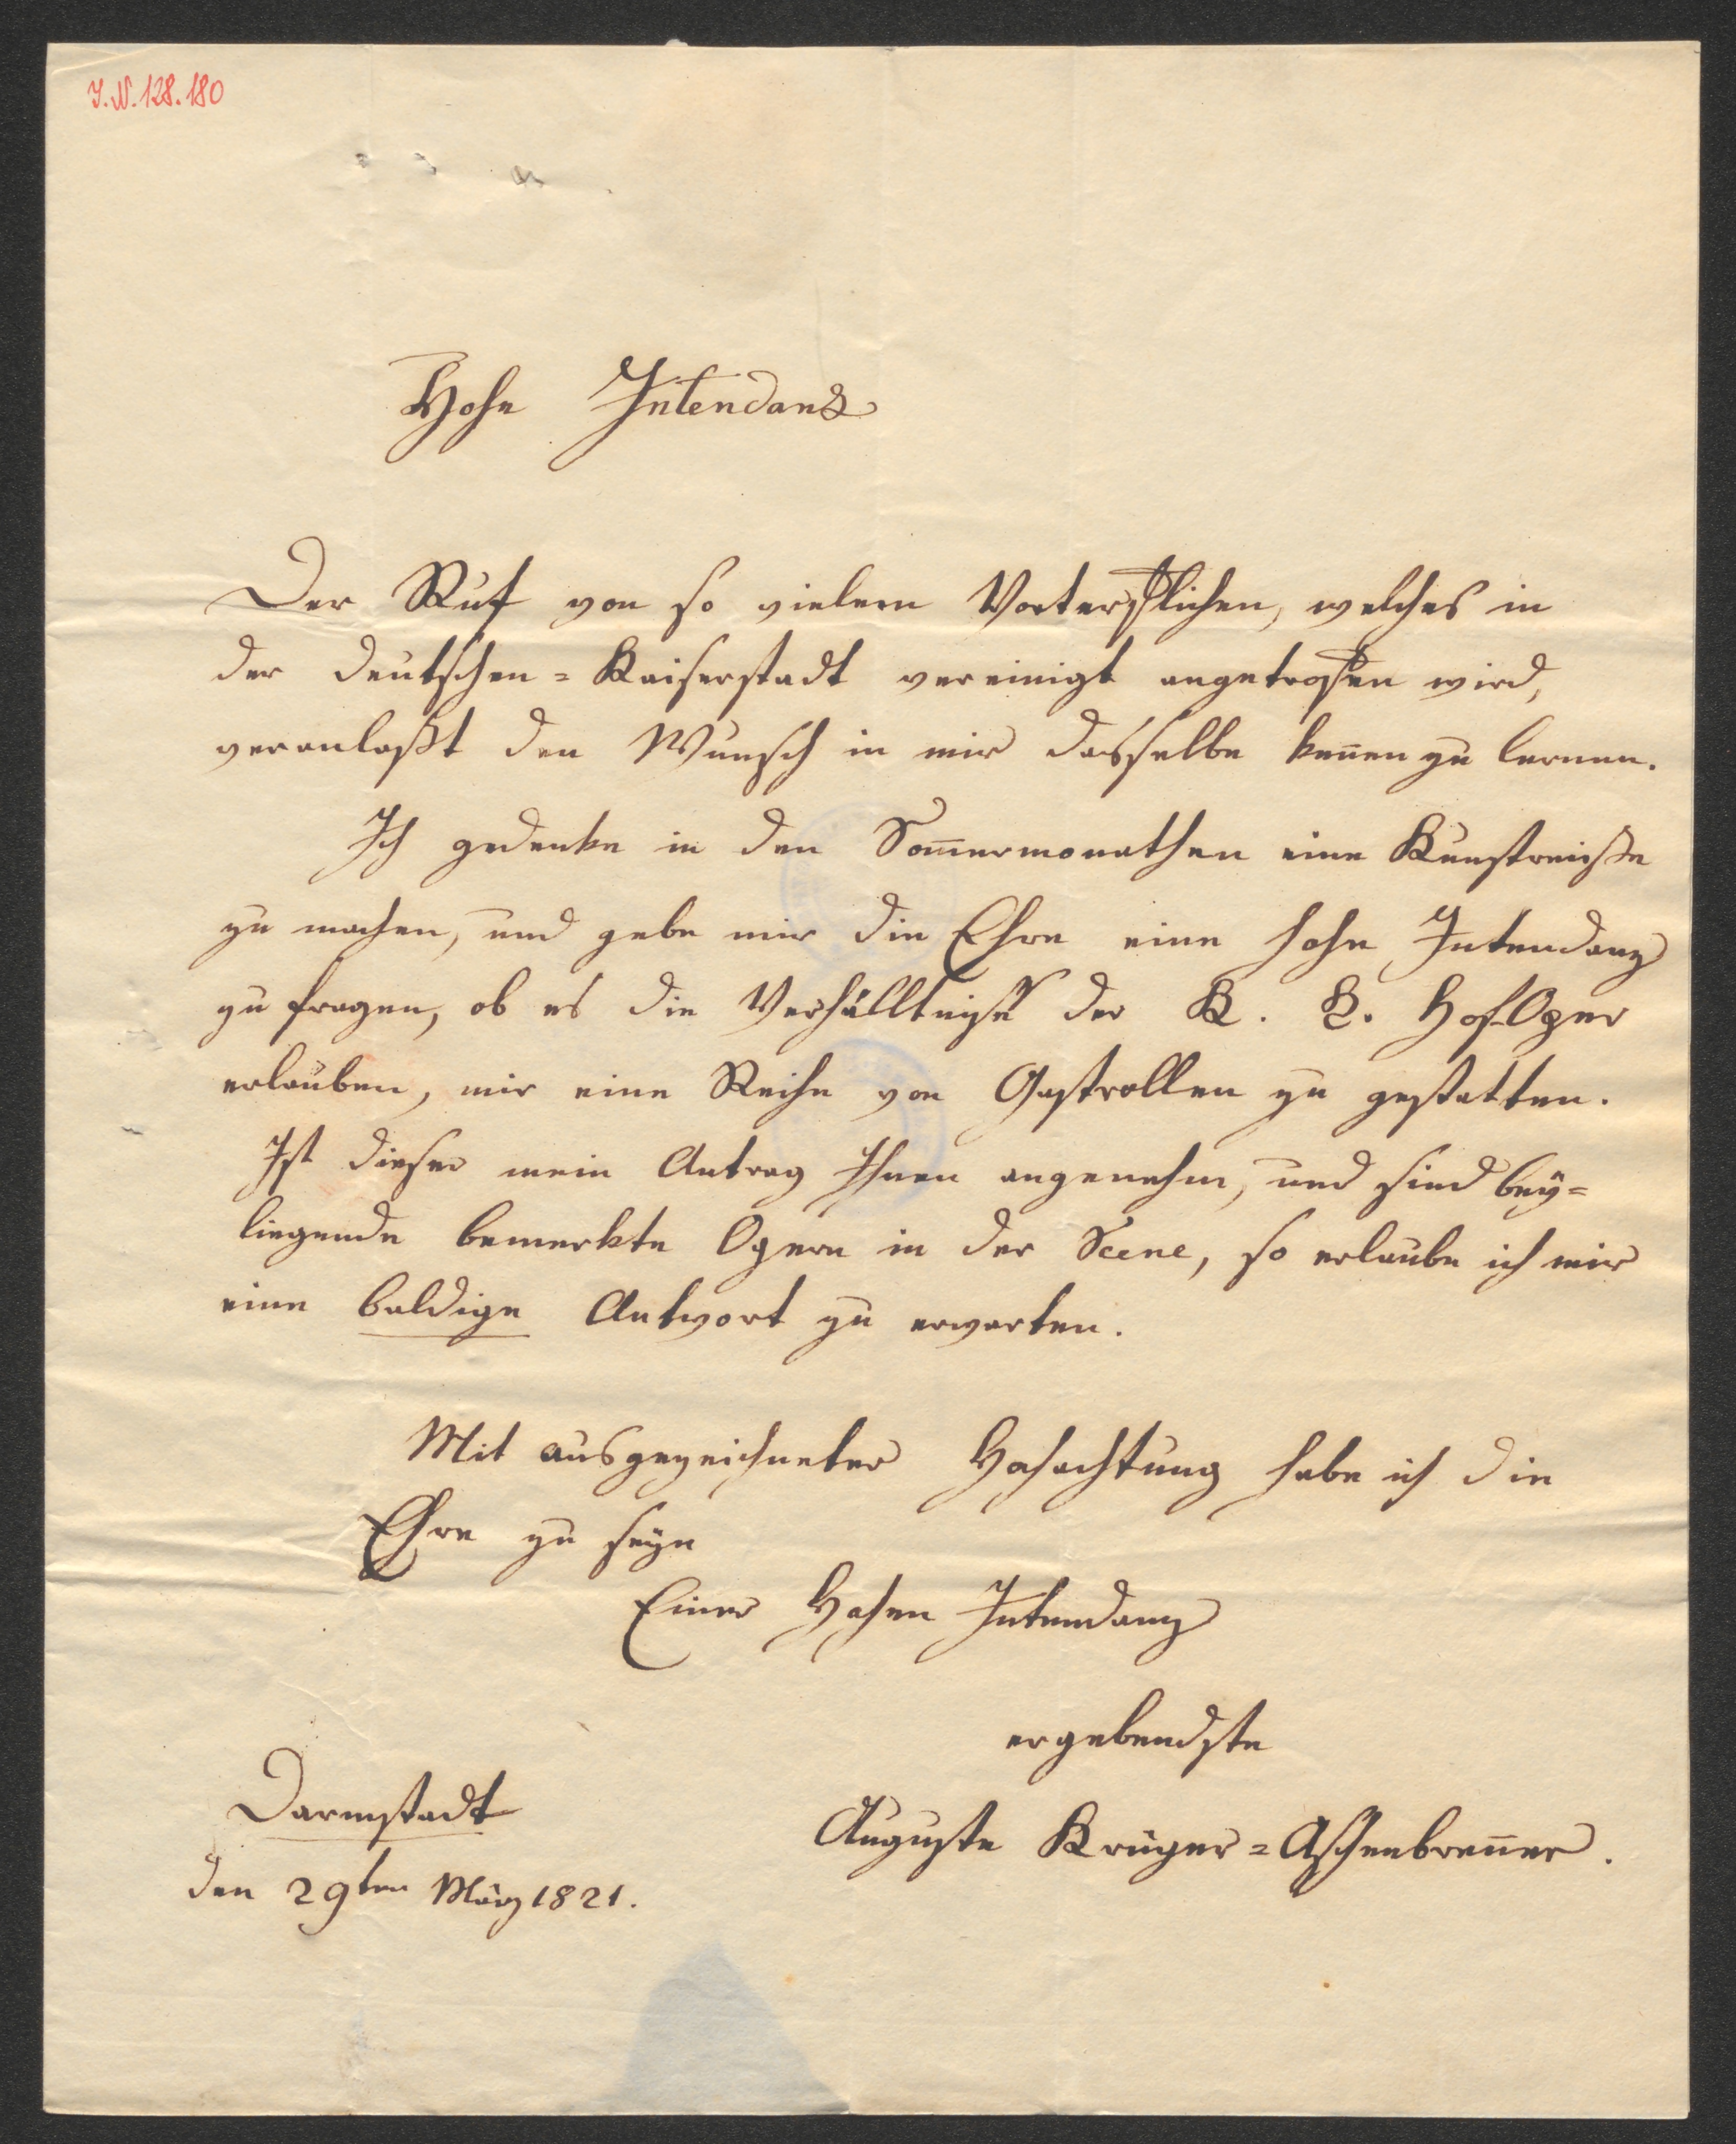 I.N. 128.180
Hohe Intendanz
Der Ruf von so vielem Vorterflichen, welches in
der deutschen=Kaiserstadt vereinigt angetroffen wird,
veranlaßt den Wunsch in mir dasselbe keñen zu lernen.
Ich gedenke in den Som̄ermonathen eine Kunstreiße
zu machen, und gebe mir die Ehre eine hohe Intendanz
zu fragen, ob es die Verhälltniße der K. K. Hof-Oper
erlauben, mir eine Reihe von Gastrollen zu gestatten.
Ist dieser mein Antrag Ihnen angenehm, und sind bey=
liegende bemerkte Opern in der Scene, so erlaube ich mir
eine baldige Antwort zu erwarten.
Mit ausgezeichneter Hochachtung habe ich die
Ehre zu seÿn
Einer Hohen Intendanz
ergebendste
Auguste Krüger=Aschenbreñer.
Darmstadt
den 29ten März 1821.